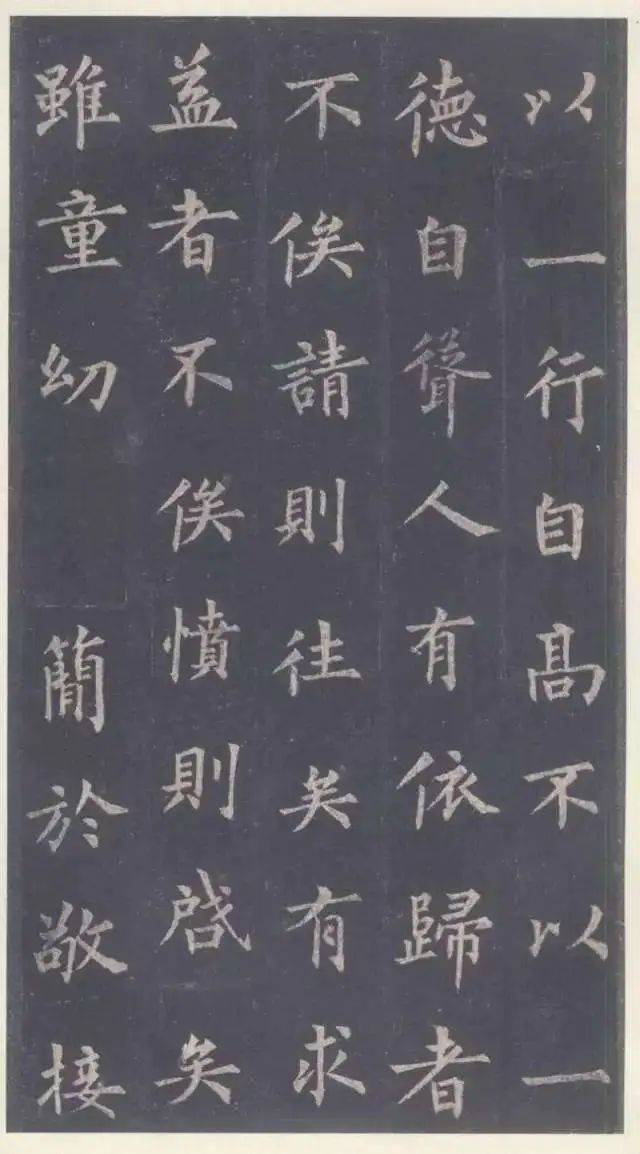 以一行自髙不以一
徳自聳人有依歸者
不俟請則往矣有求
益者不俟憤則啓矣
雖童幼 簡於敬接